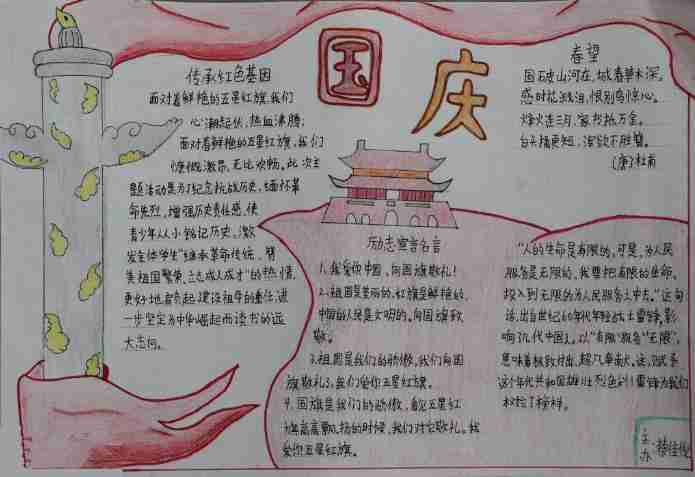 国庆
传承红色基因
面对着鲜艳的五星红旗,我们
心潮起伏,热血沸腾;
面对着鲜艳的五星红旗,我们
慷慨激昂,无比欢畅。此次主
题活动是为了纪念抗战历史,缅怀革
命先烈,增强历史责任感,使
青少年从小铭记历史,激
发全体学生"继承革命传统,
美祖国繁荣,立志成人成才"的热情,
更好地肩负起建设祖国的重任,进
一步坚定为中华崛起而读书的远
大志向。
春望
国破山河在,城春草木深。
感时花溅泪,恨别鸟惊心。
烽火连三月,家书抵万金。
白头搔更短,浑欲不胜簪。
(唐)杜甫
励志宣言名言
1、我爱你中国,向国旗敬礼!
2、祖国是美丽的,红旗是鲜艳的,
中国的人民是文明的。向国旗致
敬。
3、祖国是我们的骄傲,我们向国
旗敬礼,我们爱你五星红旗。
4、国旗是我们的骄傲,看见五星红
旗高高飘扬的时候,我们对它敬礼。我
爱你五星红旗。
"人的生命是有限的,可是,为人民
服务是无限的,我要把有限的生命,
投入到无限的为人民服务之中去。"这句
话,出自世纪60年代年轻战士雷锋,影
响了几代中国人。以"有限"服务"无限",
意味着极致付出、超凡奉献。这,就是
这个年代共和国雄壮烈色彩!雷锋为我们
树立了榜样。
主
办: